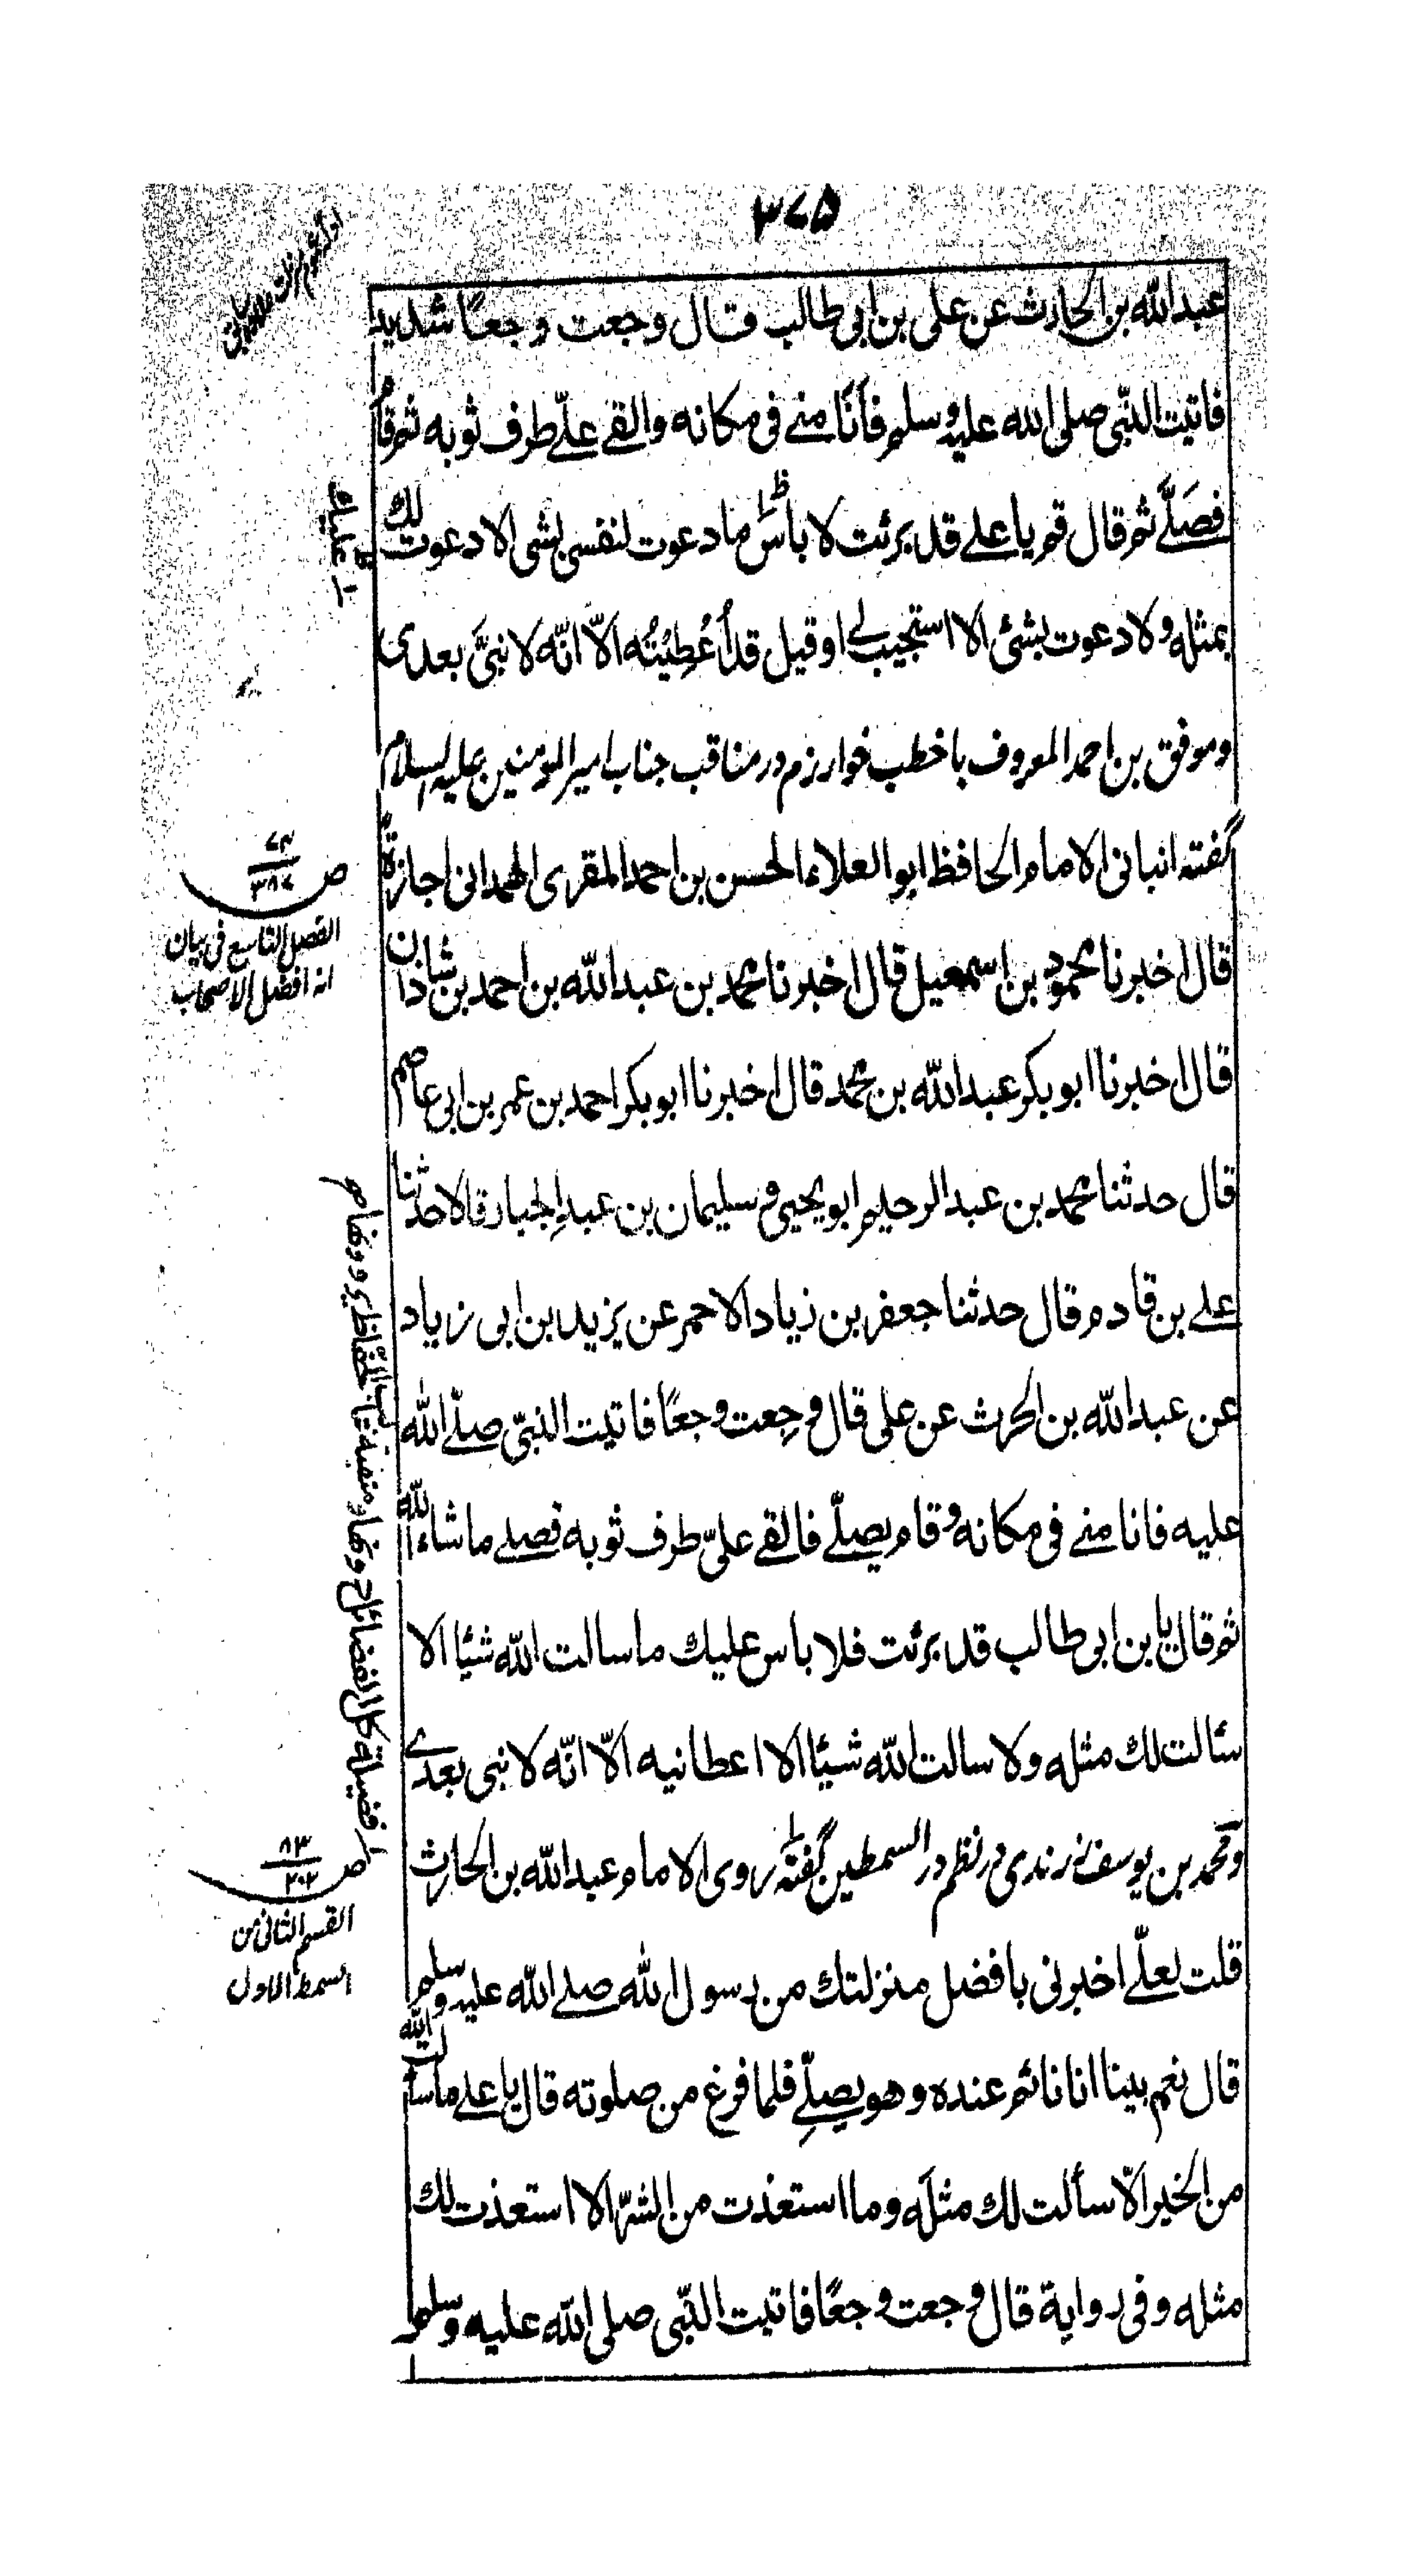 ۳۷۵
عبدالله بن الحارث عن علی بن ابی طالب قال وجعت وجعًا شدید
فاتیت النّبی صلی الله علیه وسلم فأَنَامنے فی مکانه والقے علیّ طرف ثوبه ثم قامُ
فصَلّے ثم قال قم یا علے قد برئت لا باس ما دعوت لنفسی بشی الا دعوت لك
بمثله ولا دعوت بشئ الا استجیب لے او قیل قد أُعْطِیْتُه الّا انّه لا نبیَّ بعدی
وموفق بن احمد المعروف باخطب خوارزم در مناقب جناب امیر المومنین علیه السلام
گفته انبانی الامام الحافظ ابو العلاء الحسن بن احمد المقری الهمدانی اجازة
قال اخبرنا محمود بن اسمعیل قال اخبرنا محمد بن عبدالله بن احمد بن شاذان
قال اخبرنا ابو بکر عبدالله بن محمد قال اخبرنا ابو بکر احمد بن عمر بن ابی عاصم
قال حدثنا محمد بن عبدالرحیم ابو یحیی و سلیمان بن عبدالجبار قالا حدثنا
علے بن قادم قال حدثنا جعفر بن زیاد الاحمر عن یزید بن ابی زیاد
عن عبدالله بن الحرث عن علی قال وجِعت وجعًا فاتیت النبیّ صلّے الله
علیه فانامنے فی مکانه وقام یصلّے فالقے علیّ طرف ثوبه فصلے ما شاء الله
ثم قال یا بن ابی طالب قد برئت فلا باس علیك ما سالت الله شیئا الا
سئالت لك مثله ولا سالت الله شیئا الا اعطانیه الّا انّه لا نبی بعدے
ومحمد بن یوسف زرندی در نظم درر السمطین گفته روی الامام عبدالله بن الحارث
قلت لعلیّ اخبرنی بافضل منزلتك من رسول الله صلے الله علیه وسلم
قال نعم بینا انا نائم عنده وهو یصلّے فلما فرغ من صلوته قال یا علے ما سألت الله
من الخیر الّا سألت لك مثلَه وما استعذت من الشرّ الا استعذت لك
مثله وفی روایة قال وجعت وجعًا فاتیت النّبی صلی الله علیه وسلم
علیك
ص ۷۴
۳۸۷
الفصل التاسع فی بیان
انه افضل الاصحاب
ص ۸۳
۲۰۲
القسم الثانی من
السمط الاول